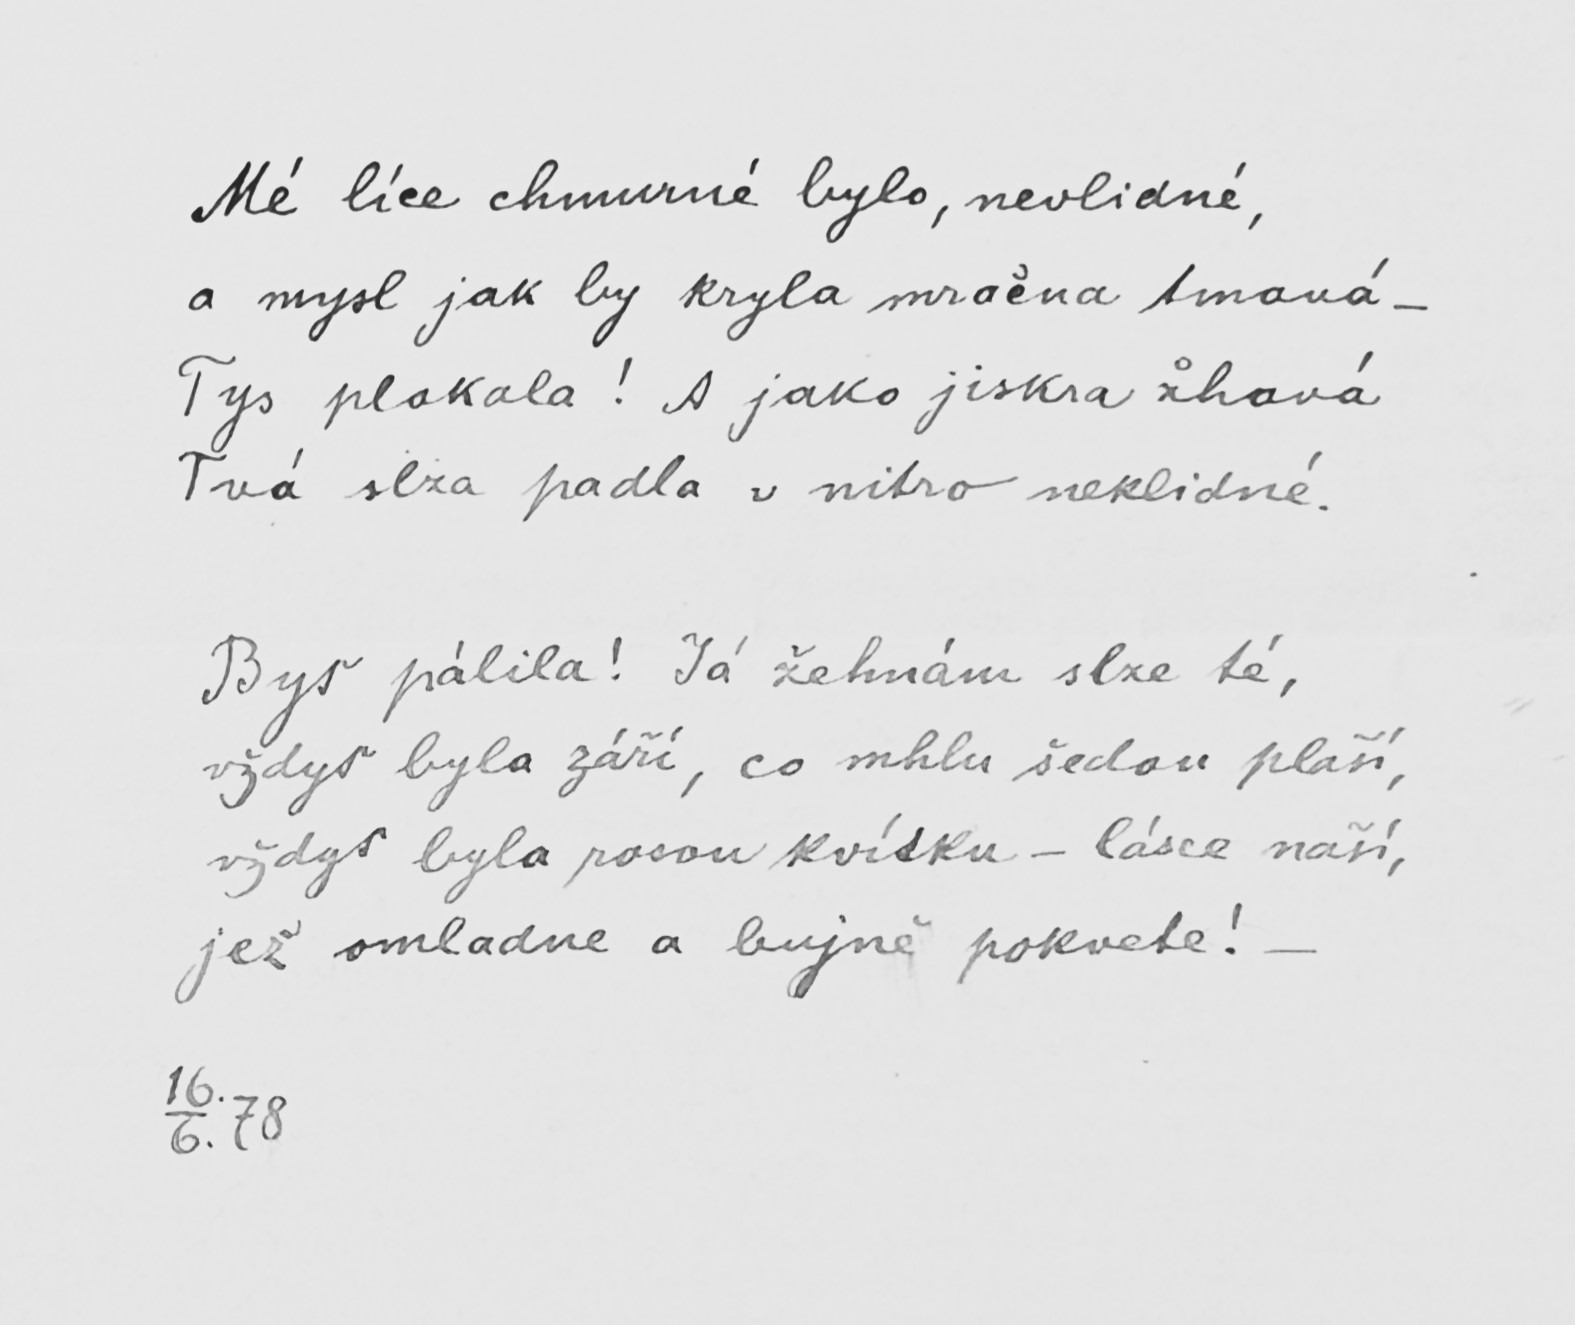 Mé líce chmurné bylo, nevlidné,
a mysl jak by kryla mračna tmavá –
Tys plakala! A jako jiskra žhavá
Tvá slza padla v nitro neklidné.
Byś pálila! Já žehnám slze té,
vždyť byla září, co mhlu šedou plaší,
vždyť byla rosou kvítku – lásce naší,
jež omladne a bujně pokvete! –
16./6. 78